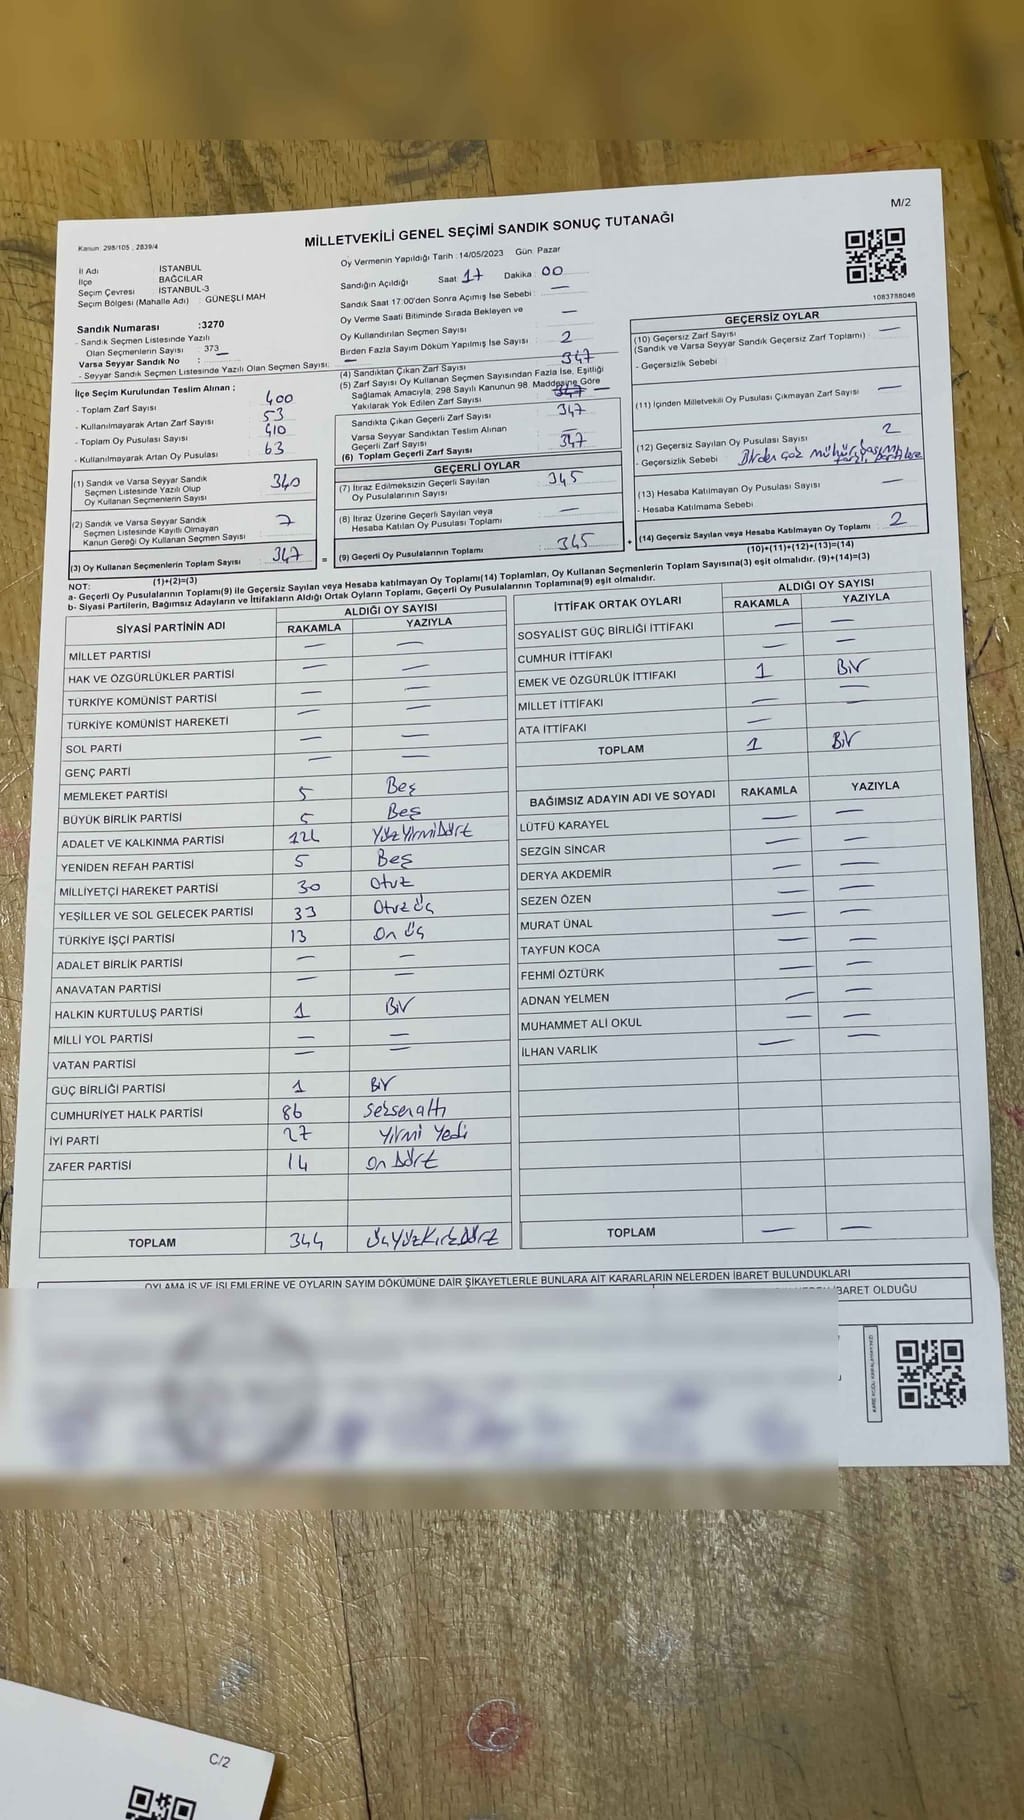 M/2
Kanun: 298/105 , 2839/4
MİLLETVEKİLİ GENEL SEÇİMİ SANDIK SONUÇ TUTANAĞI
İl Adı İSTANBUL
İlçe BAĞCILAR
Seçim Çevresi İSTANBUL-3
Seçim Bölgesi (Mahalle Adı) : GÜNEŞLİ MAH
Sandık Numarası :3270
- Sandık Seçmen Listesinde Yazılı
Olan Seçmenlerin Sayısı : 373
Varsa Seyyar Sandık No : —
- Seyyar Sandık Seçmen Listesinde Yazılı Olan Seçmen Sayısı: —
Oy Vermenin Yapıldığı Tarih : 14/05/2023 Gün: Pazar
Sandığın Açıldığı Saat: 17 Dakika : 00
Sandık Saat 17:00'den Sonra Açımış İse Sebebi : —
Oy Verme Saati Bitiminde Sırada Bekleyen ve
Oy Kullandırılan Seçmen Sayısı —
Birden Fazla Sayım Döküm Yapılmış İse Sayısı : 2
1083788046
İlçe Seçim Kurulundan Teslim Alınan ;
- Toplam Zarf Sayısı 400
- Kullanılmayarak Artan Zarf Sayısı 53
- Toplam Oy Pusulası Sayısı 410
- Kullanılmayarak Artan Oy Pusulası 63
(1) Sandık ve Varsa Seyyar Sandık
Seçmen Listesinde Yazılı Olup
Oy Kullanan Seçmenlerin Sayısı 340
(2) Sandık ve Varsa Seyyar Sandık
Seçmen Listesinde Kayıtlı Olmayan
Kanun Gereği Oy Kullanan Seçmen Sayısı : 7
(3) Oy Kullanan Seçmenlerin Toplam Sayısı 347
(1)+(2)=(3)
(4) Sandıktan Çıkan Zarf Sayısı 347
(5) Zarf Sayısı Oy Kullanan Seçmen Sayısından Fazla İse, Eşitliği
Sağlamak Amacıyla, 298 Sayılı Kanunun 98. Maddesine Göre
Yakılarak Yok Edilen Zarf Sayısı 347 —
Sandıkta Çıkan Geçerli Zarf Sayısı 347
Varsa Seyyar Sandıktan Teslim Alınan
Geçerli Zarf Sayısı —
(6) Toplam Geçerli Zarf Sayısı 347
GEÇERLİ OYLAR
(7) İtiraz Edilmeksizin Geçerli Sayılan
Oy Pusulalarının Sayısı 345
(8) İtiraz Üzerine Geçerli Sayılan veya
Hesaba Katılan Oy Pusulası Toplamı —
= (9) Geçerli Oy Pusulalarının Toplamı 345
GEÇERSİZ OYLAR
(10) Geçersiz Zarf Sayısı
(Sandık ve Varsa Seyyar Sandık Geçersiz Zarf Toplamı) : —
- Geçersizlik Sebebi :
(11) İçinden Milletvekili Oy Pusulası Çıkmayan Zarf Sayısı —
(12) Geçersiz Sayılan Oy Pusulası Sayısı 2
- Geçersizlik Sebebi
(13) Hesaba Katılmayan Oy Pusulası Sayısı —
- Hesaba Katılmama Sebebi
+ (14) Geçersiz Sayılan veya Hesaba Katılmayan Oy Toplamı : 2
(10)+(11)+(12)+(13)=(14)
NOT:
a- Geçerli Oy Pusulalarının Toplamı(9) ile Geçersiz Sayılan veya Hesaba katılmayan Oy Toplamı(14) Toplamları, Oy Kullanan Seçmenlerin Toplam Sayısına(3) eşit olmalıdır. (9)+(14)=(3)
b- Siyasi Partilerin, Bağımsız Adayların ve İttifakların Aldığı Ortak Oyların Toplamı, Geçerli Oy Pusulalarının Toplamına(9) eşit olmalıdır.
SİYASİ PARTİNİN ADI ALDIĞI OY SAYISI
RAKAMLA YAZIYLA
MİLLET PARTİSİ — —
HAK VE ÖZGÜRLÜKLER PARTİSİ — —
TÜRKİYE KOMÜNİST PARTİSİ — —
TÜRKİYE KOMÜNİST HAREKETİ — —
SOL PARTİ — —
GENÇ PARTİ — —
MEMLEKET PARTİSİ 5 Beş
BÜYÜK BİRLİK PARTİSİ 5 Beş
ADALET VE KALKINMA PARTİSİ 124 YüzYirmiDört
YENİDEN REFAH PARTİSİ 5 Beş
MİLLİYETÇİ HAREKET PARTİSİ 30 Otuz
YEŞİLLER VE SOL GELECEK PARTİSİ 33 Otuz üç
TÜRKİYE İŞÇİ PARTİSİ 13 On üç
ADALET BİRLİK PARTİSİ — —
ANAVATAN PARTİSİ — —
HALKIN KURTULUŞ PARTİSİ 1 Bir
MİLLİ YOL PARTİSİ — —
VATAN PARTİSİ — —
GÜÇ BİRLİĞİ PARTİSİ 1 Bir
CUMHURİYET HALK PARTİSİ 86 Seksenaltı
İYİ PARTİ 27 Yirmi Yedi
ZAFER PARTİSİ 14 On Dört
TOPLAM 344 ÜçYüzKırkDört
İTTİFAK ORTAK OYLARI ALDIĞI OY SAYISI
RAKAMLA YAZIYLA
SOSYALİST GÜÇ BİRLİĞİ İTTİFAKI — —
CUMHUR İTTİFAKI — —
EMEK VE ÖZGÜRLÜK İTTİFAKI 1 Bir
MİLLET İTTİFAKI — —
ATA İTTİFAKI — —
TOPLAM 1 Bir
BAĞIMSIZ ADAYIN ADI VE SOYADI RAKAMLA YAZIYLA
LÜTFÜ KARAYEL — —
SEZGİN SİNCAR — —
DERYA AKDEMİR — —
SEZEN ÖZEN — —
MURAT ÜNAL — —
TAYFUN KOCA — —
FEHMİ ÖZTÜRK — —
ADNAN YELMEN — —
MUHAMMET ALİ OKUL — —
İLHAN VARLIK — —
TOPLAM — —
OYLAMA İŞ VE İŞLEMLERİNE VE OYLARIN SAYIM DÖKÜMÜNE DAİR ŞİKAYETLERLE BUNLARA AİT KARARLARIN NELERDEN İBARET BULUNDUKLARI
İBARET OLDUĞU
C/2